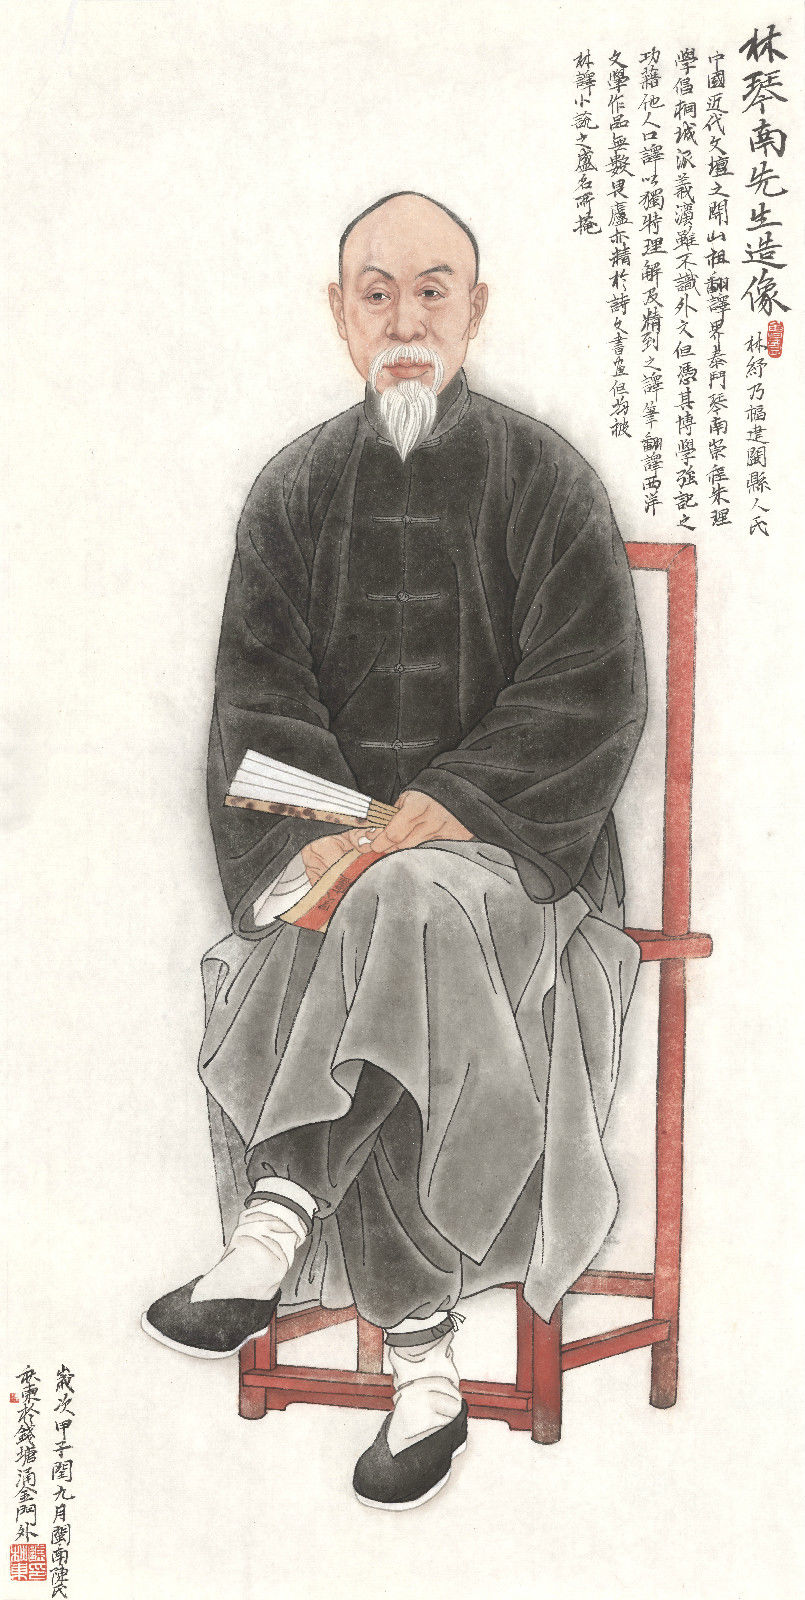 林琴南先生造像
林紓乃福建閩縣人氏
中國近代文壇之開山祖翻譯界泰鬥琴南崇程朱理
學倡桐城派義法雖不識外文但憑其博學強記之
功藉他人口譯以獨特理解及精到之譯筆翻譯西洋
文學作品無數畏廬亦精於詩文書畫但均被
林譯小說之盛名所掩
歲次甲子閏九月閩南陳氏
於錢塘涌金門外